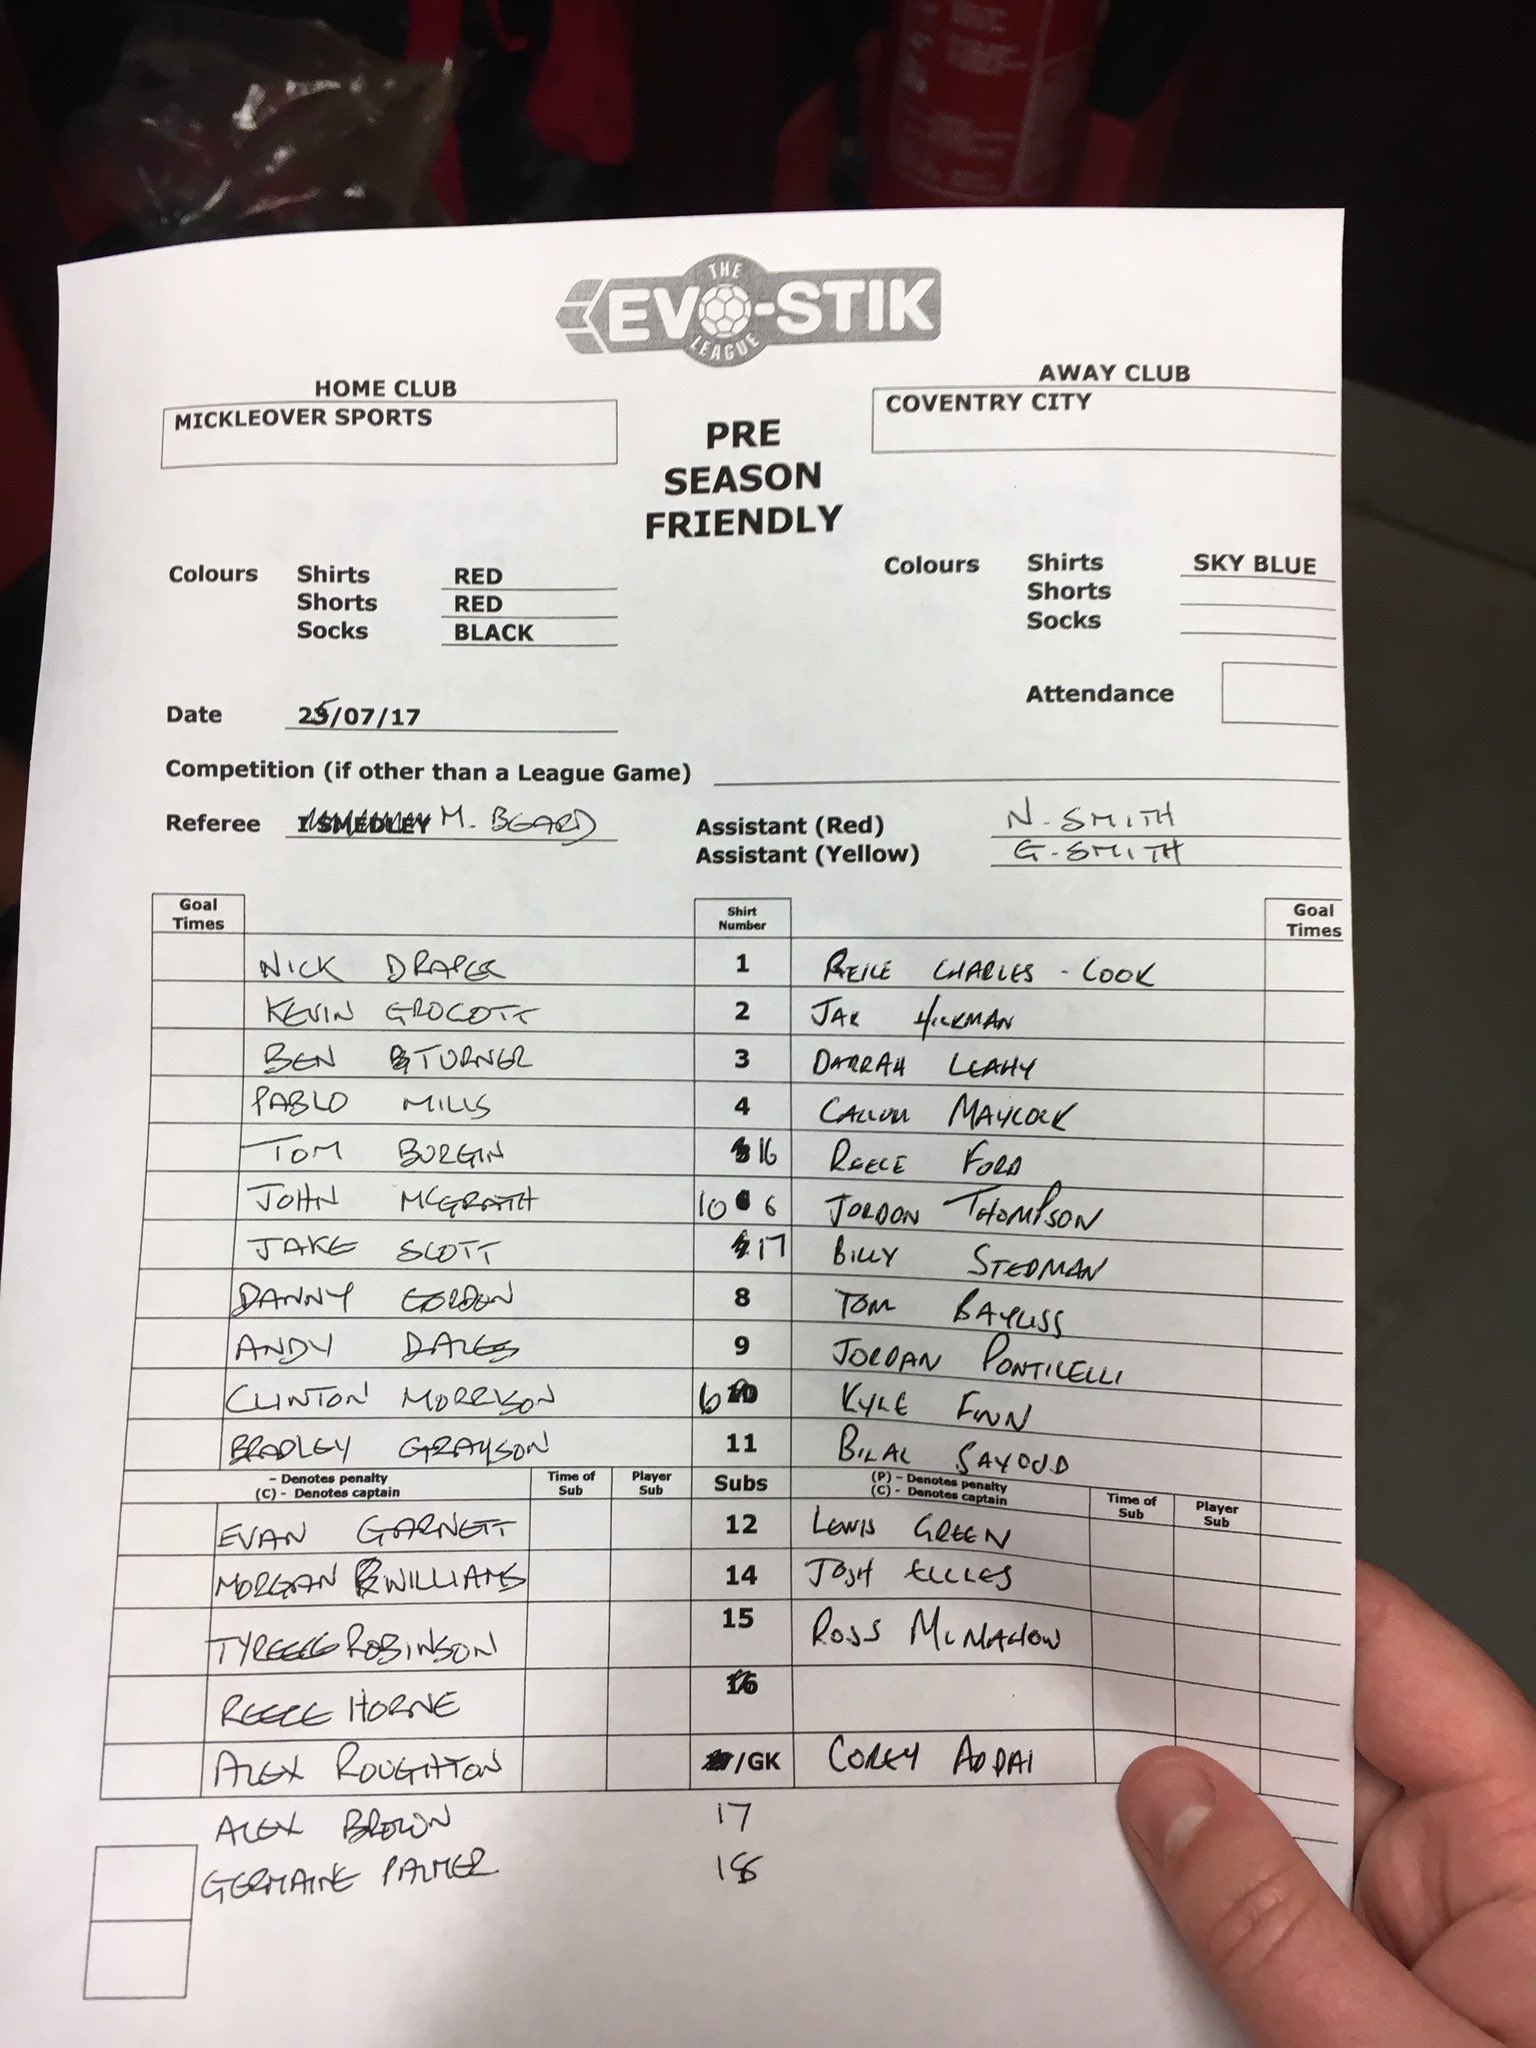 THE
EVO-STIK
LEAGUE
HOME CLUB
AWAY CLUB
MICKLEOVER SPORTS
COVENTRY CITY
PRE
SEASON
FRIENDLY
Colours Shirts RED
Shorts RED
Socks BLACK
Colours Shirts SKY BLUE
Shorts
Socks
Attendance
Date 25/07/17
Competition (if other than a League Game)
Referee I SMEDLEY M. BEARD
Assistant (Red) N. SMITH
Assistant (Yellow) G. SMITH
Goal Times Shirt Number Goal Times
NICK DRAPER 1 REICE CHARLES - COOK
KEVIN GROCOTT 2 JAK HICKMAN
BEN TURNER 3 DARRAH LEAHY
PABLO MILLS 4 CALLUM MAYCOCK
TOM BURGIN 16 REECE FORD
JOHN MCGRATH 10 6 JORDON THOMPSON
JAKE SCOTT 17 BILLY STEDMAN
DANNY GORDON 8 TOM BAYLISS
ANDY DALES 9 JORDAN PONTICELLI
CLINTON MORRISON 6 10 KYLE FINN
BRADLEY GRAYSON 11 BILAL SAYOUD
- Denotes penalty
(C) - Denotes captain
Time of Sub Player Sub Subs
(P) - Denotes penalty
(C) - Denotes captain
Time of Sub Player Sub
EVAN GARNETT 12 LEWIS GREEN
MORGAN WILLIAMS 14 JOSH ECCLES
TYREECE ROBINSON 15 ROSS MCMAHON
REECE HORNE 16
ALEX ROUGHTON /GK COREY ADDAI
ALEX BROWN 17
GERMAINE PALMER 18